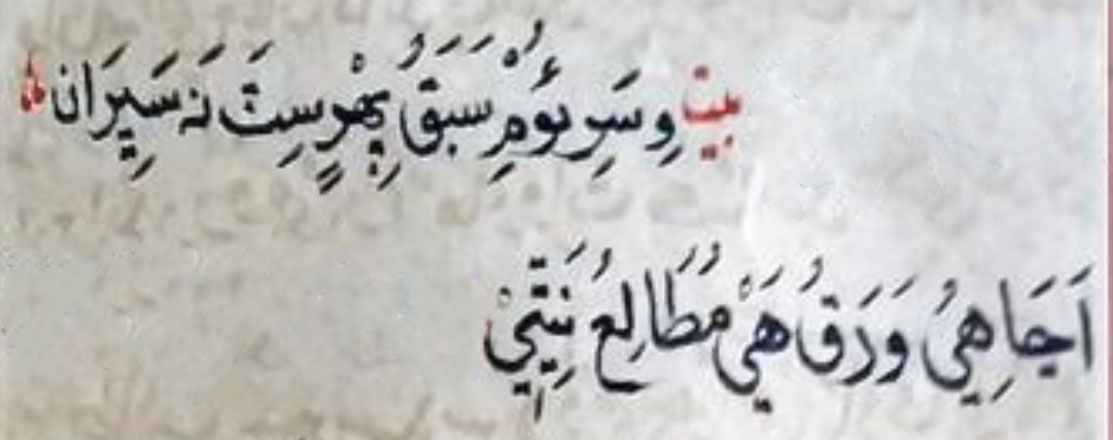 بيت وِسَرِ ئُومِ سَبَقُ پِهْرِسِتَ نَہ سَيِرَان
اَجَاهِيُ وَرَقُ هَيْ مُطَالِعُ نِتِيْ